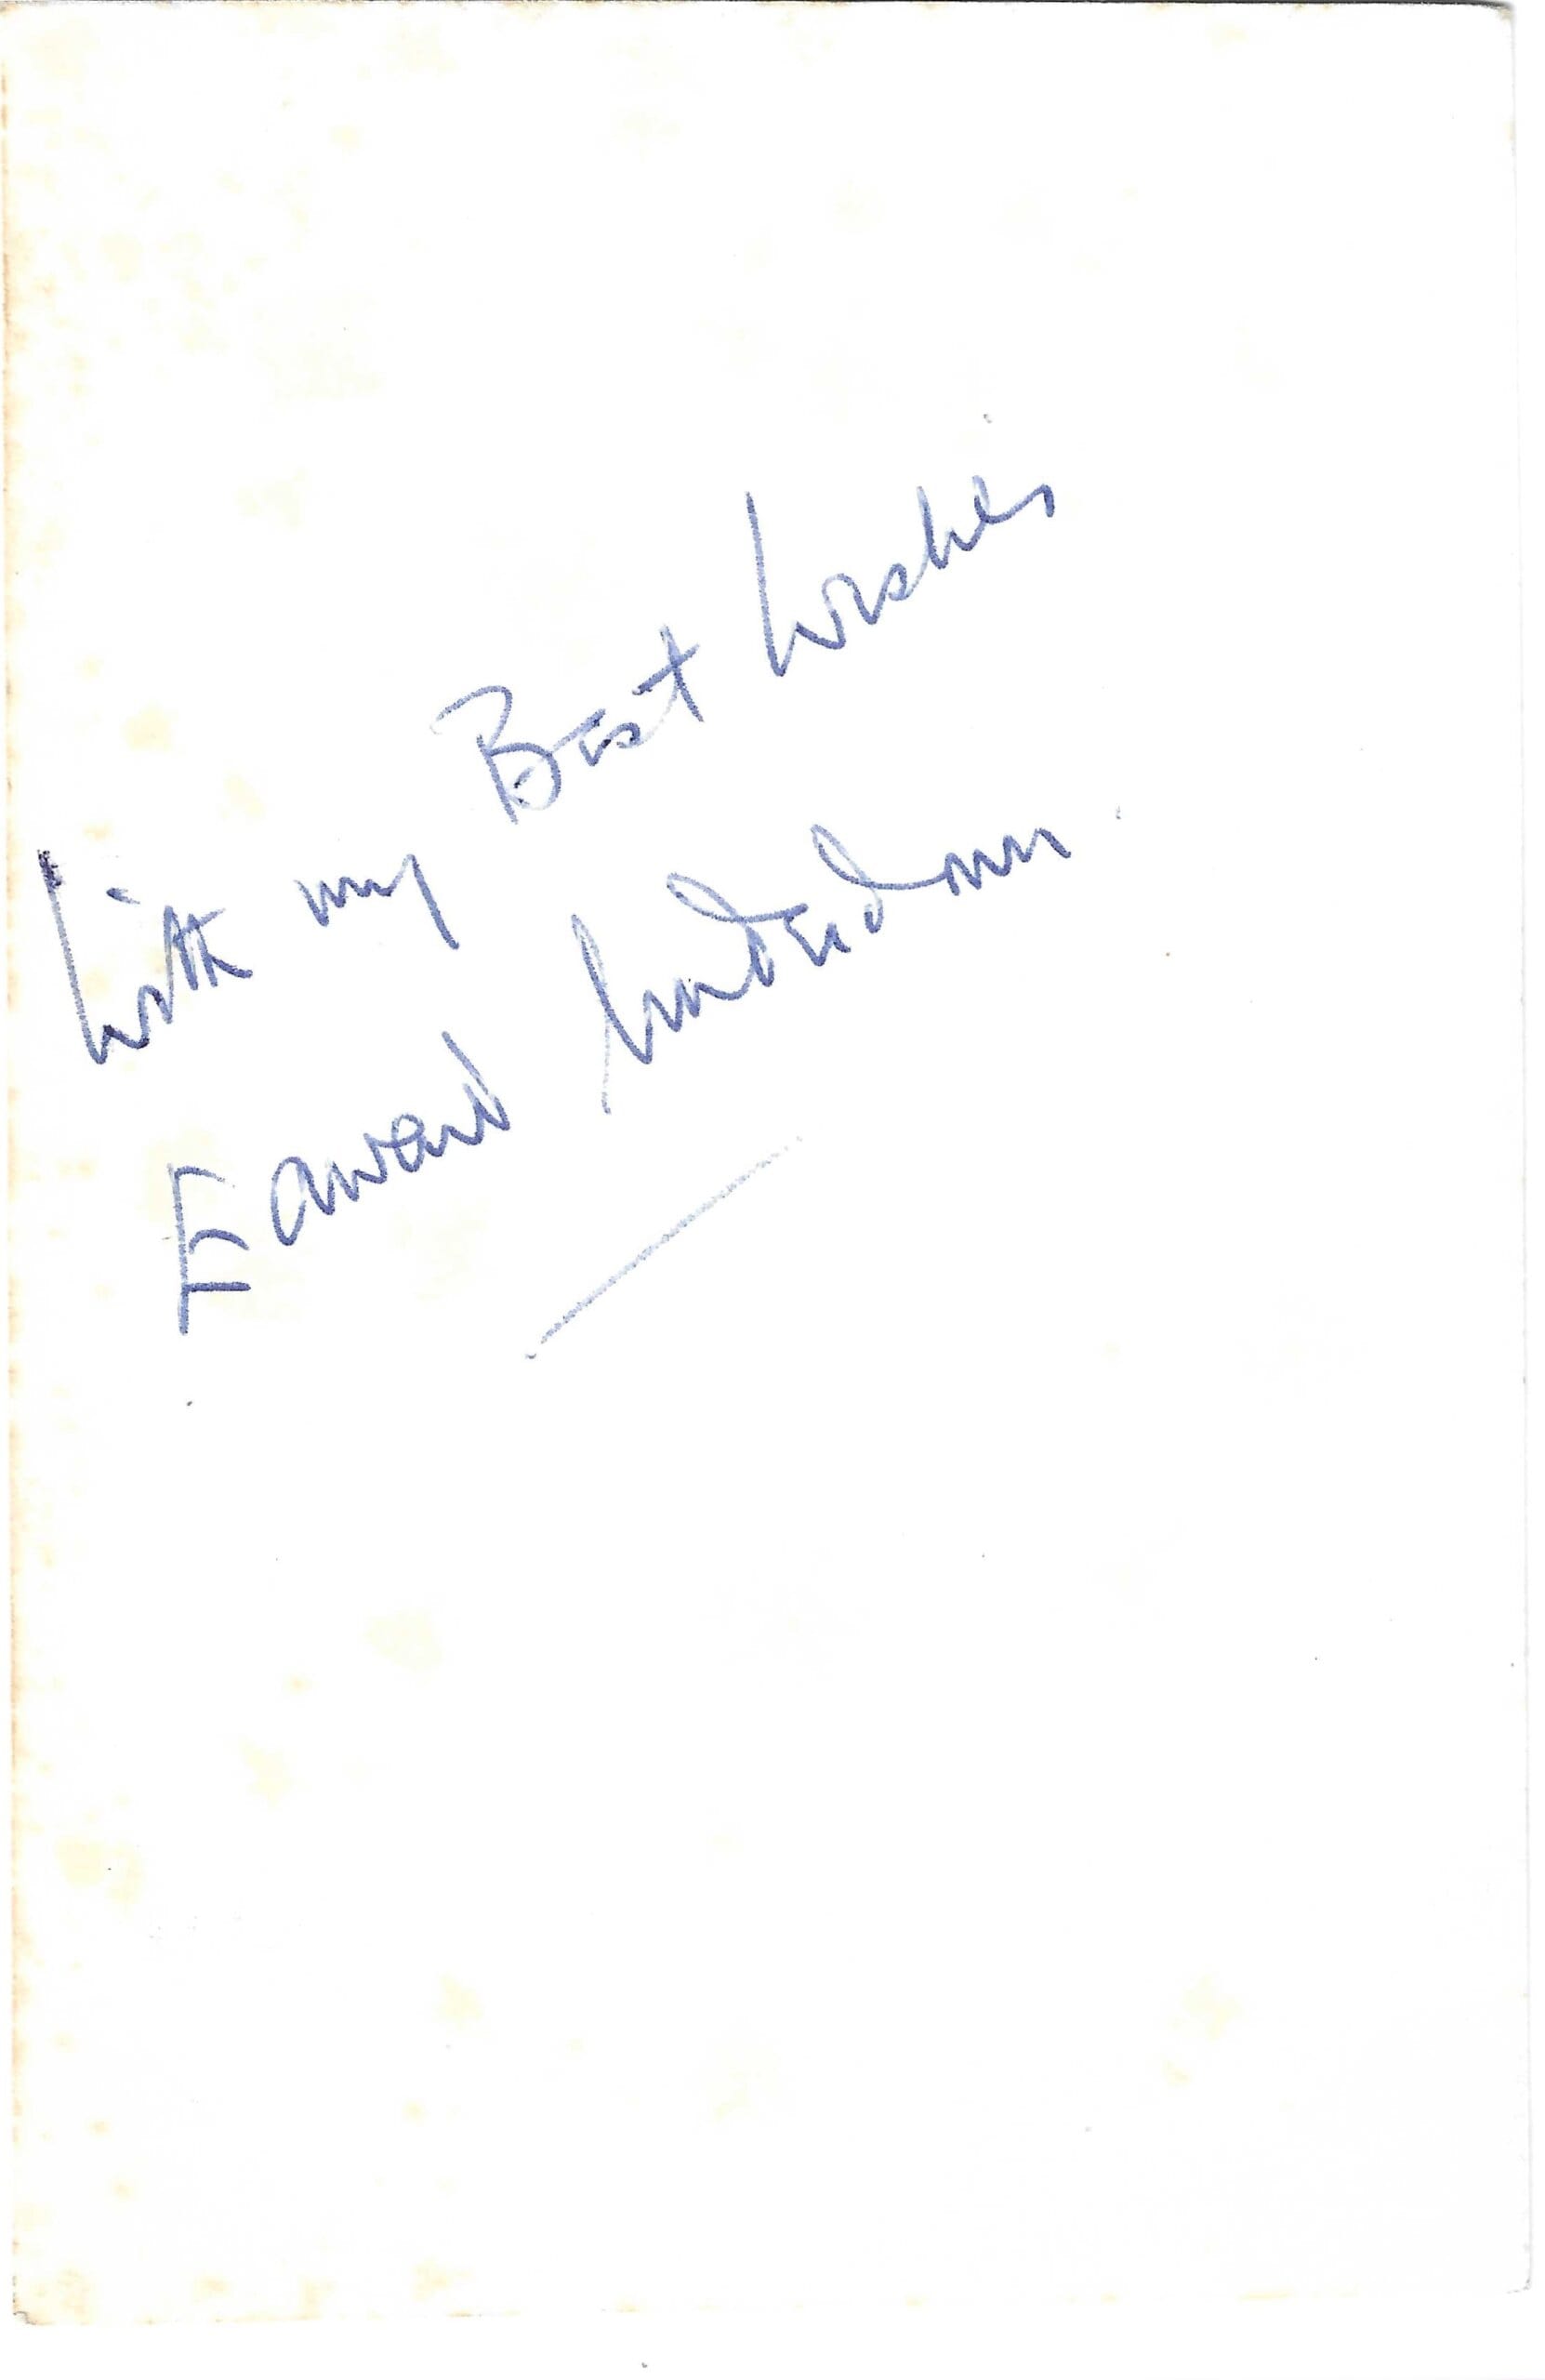 With my Best Wishes
Edward